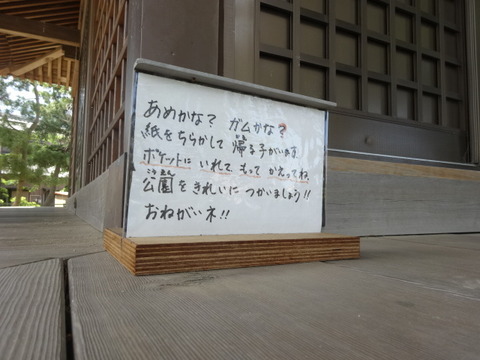 あめかな? ガムかな?
紙をちらかして 帰る子がいます
ポケットに いれて、もって かえってね。
公園を きれいに つかいましょう!!
おねがいネ!!